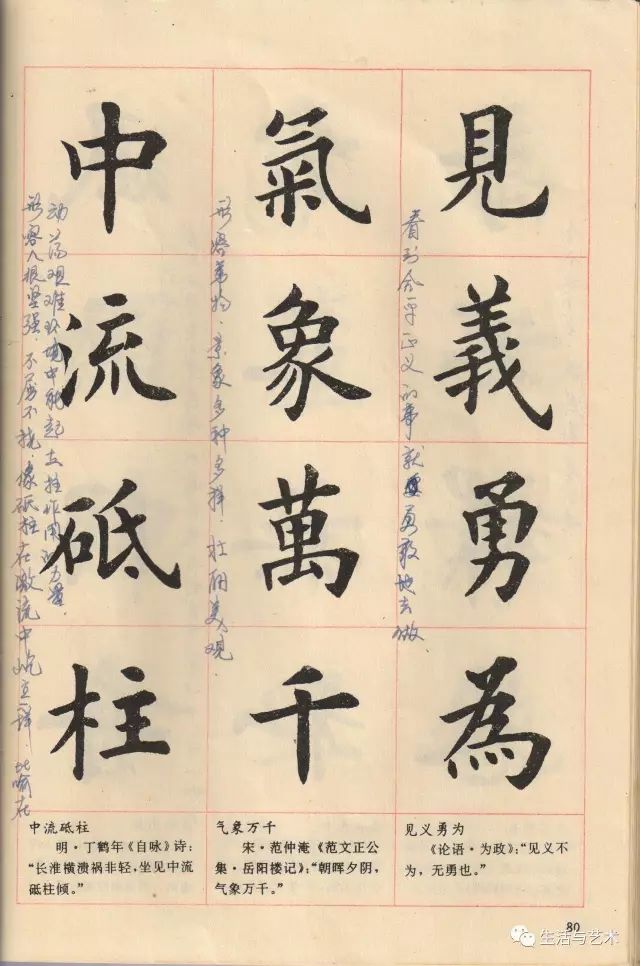 見義勇為
看到合乎正义的事就要勇敢地去做.
見义勇为
《论语·为政》：“见义不
为，无勇也。”
氣象萬千
形容事物.景象多种多样.壮丽美观.
气象万千
宋·范仲淹《范文正公
集·岳阳楼记》：“朝晖夕阴，
气象万千。”
中流砥柱
形容人很坚强.不屈不挠.像砥柱在激流中屹立一样.比喻在
动荡艰难环境中能起支柱作用的力量.
中流砥柱
明·丁鹤年《自咏》诗：
“长淮横溃祸非轻，坐见中流
砥柱倾。”
80
生活与艺术